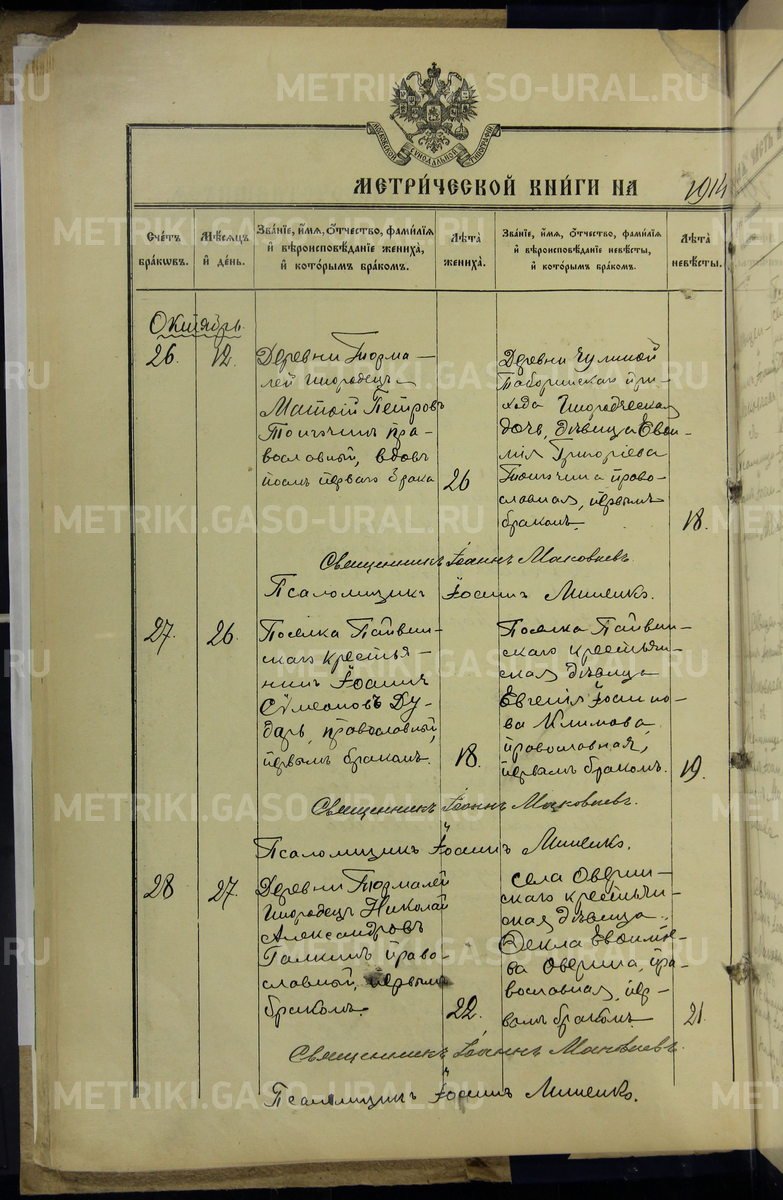 МОСКОВСКОЙ СѴНОДАЛЬНОЙ ТИПОГРАФІИ
МЕТРИ́ЧЕСКОЙ КНИ́ГИ НА 1914
Сче́тъ
бра́кѡвъ.
Мѣ́сѧцъ
и҆ де́нь.
Зва́нїе, и҆́мѧ, ѻ҆́тчество, фами́лїѧ
и҆ вѣроисповѣ́данїе жениха̀,
и҆ кото́рымъ бра́комъ.
Лѣ́та
жениха̀.
Зва́нїе, и҆́мѧ, ѻ҆́тчество, фами́лїѧ
и҆ вѣроисповѣ́данїе невѣ́сты,
и҆ кото́рымъ бра́комъ.
Лѣ́та
невѣ́сты.
Октябрь.
26. 12.
Деревни Торма-
лей инородецъ
Матѳій Петровъ
православный, вдовъ
послѣ перваго брака
26
Деревни Чулиной
Таборинскаго при-
хода инородческая
дочь, дѣвица Евѳи-
мія Григоріева
право-
славная, первымъ
бракомъ.
18.
Священникъ Іоаннъ Маковѣевъ.
Псаломщикъ Іосифъ Миненко.
27. 26.
Поселка
скаго крестья-
нинъ Іоаннъ
Сѵмеоновъ Ду-
дарь, православный,
первымъ бракомъ.
18.
Поселка
скаго крестьян-
ская дѣвица
Евгенія Іосифо-
ва Климова
православная,
первымъ бракомъ.
19.
Священникъ Іоаннъ Маковѣевъ.
Псаломщикъ Іосифъ Миненко.
28 27.
Деревни Тормалей
инородецъ Николай
Александровъ
Галкинъ право-
славный, первымъ
бракомъ.
22.
Села Оверин-
скаго крестьян-
ская дѣвица
Ѳекла Евѳиміе-
ва Оверина, пра-
вославная, пер-
вымъ бракомъ.
21.
Священникъ Іоаннъ Маковѣевъ.
Псаломщикъ Іосифъ Миненко.
METRIKI.GASO-URAL.RU